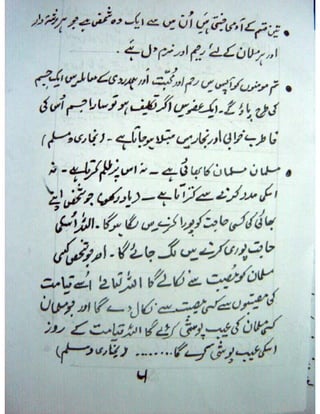 • تین قسم کے آدمی جنتی ہیں اُن میں سے ایک وہ شخص ہے جو ہر رشتہ دار
اور ہر مسلمان کے لئے رحیم اور نرم دل ہے ۔
• تم مومنوں کو آپس میں رحم اور محبّت اور ہمدردی کے معاملہ میں ایک جسم
کی طرح پاؤ گے ۔ ایک عضو میں اگر تکلیف ہو تو سارا جسم اُس کی
خاطر بے خوابی اور بخار میں مبتلا ہو جاتا ہے ۔ (بخاری و مسلم)
• مسلمان مسلمان کا بھائی ہے ۔ نہ اس پر ظلم کرتا ہے ۔ نہ
اسکی مدد کرنے سے کتراتا ہے ۔ (یاد رکھو) جو شخص اپنے
بھائی کی کسی حاجت کو پورا کرنے میں لگا ہوگا ۔ اللہ اُسکی
حاجت پوری کرنے میں لگ جائے گا ۔ اور جو شخص کسی
مسلمان کو مصیبت سے نکالے گا اللہ تعالےٰ اُسے قیامت
کی مصیبتوں سے کسی مصیبت سے نکال دے گا اور جو مسلمان
کسی مسلمان کی عیب پوشی کرے گا اللہ قیامت کے روز
اسکی عیب پوشی کرے گا ........ (بخاری و مسلم)